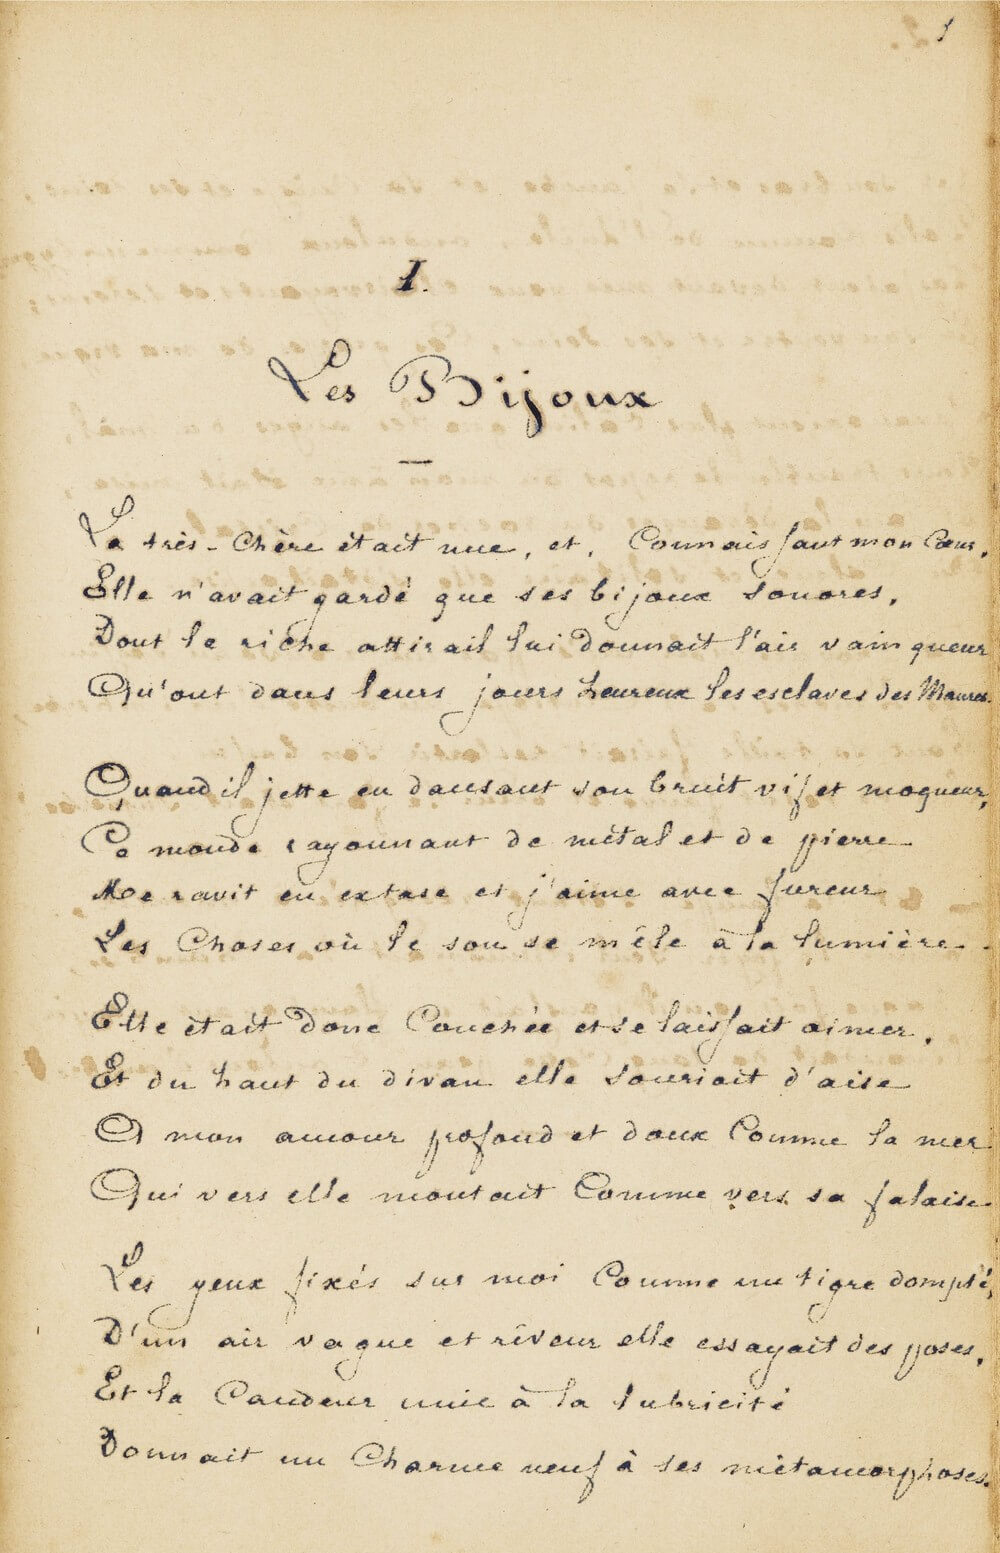 1
I.
Les Bijoux
La très-Chère était nue, et, Connaissant mon Cœur,
Elle n'avait gardé que ses bijoux sonores,
Dont le riche attirail lui donnait l'air vainqueur
Qu'ont dans leurs jours heureux les esclaves des Maures.
Quand il jette en dansant son bruit vif et moqueur,
Ce monde rayonnant de métal et de pierre
Me ravit en extase et j'aime avec fureur
Les Choses où le son se mêle à la lumière.
Elle était donc Couchée et se laissait aimer,
Et du haut du divan elle souriait d'aise
A mon amour profond et doux Comme la mer
Qui vers elle montait Comme vers sa falaise.
Les yeux fixés sur moi Comme un tigre dompté,
D'un air vague et rêveur elle essayait des poses,
Et la Candeur unie à la lubricité
Donnait un Charme neuf à ses métamorphoses.